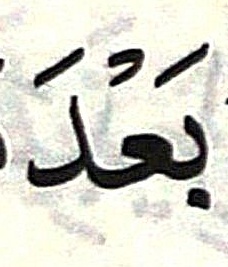 بَعْدَ